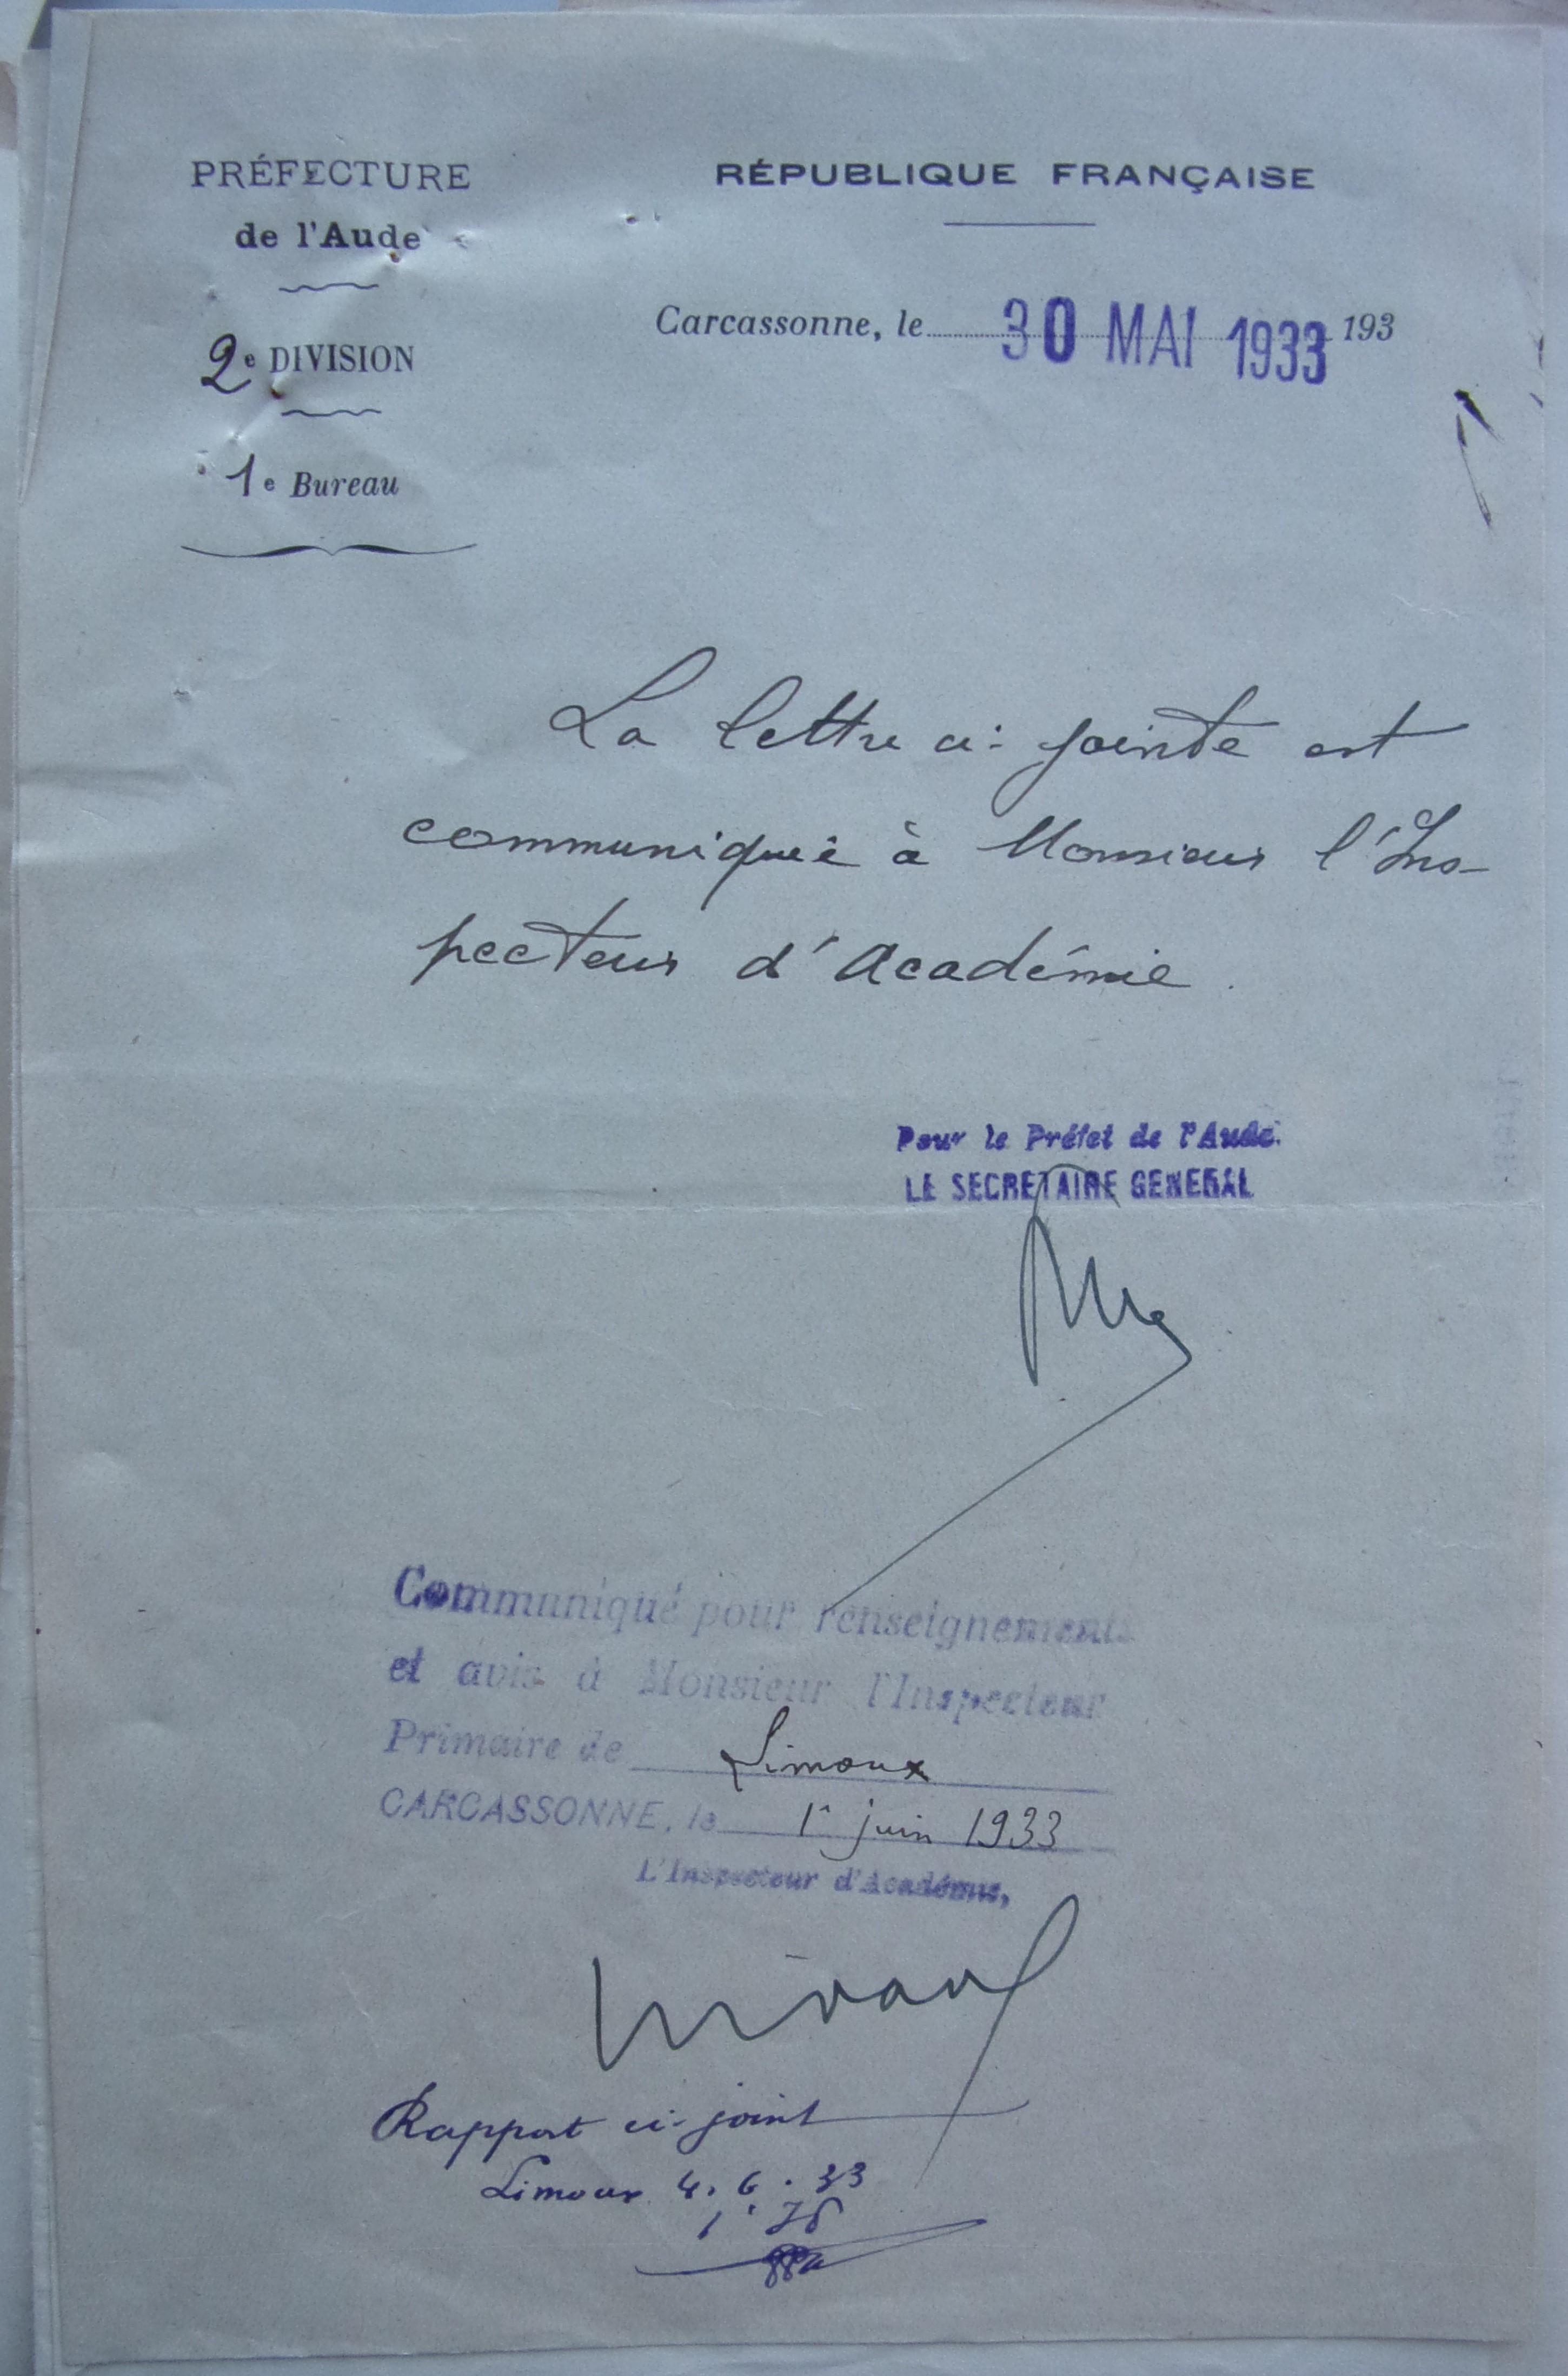 PRÉFECTURE
de l'Aude
2e DIVISION
1e Bureau
RÉPUBLIQUE FRANÇAISE
Carcassonne, le 30 MAI 1933 193
La lettre ci-jointe est
communiquée à Monsieur l'Ins-
pecteur d'Académie.
Pour le Préfet de l'Aude.
LE SECRETAIRE GENERAL
Communiqué pour renseignements
et avis à Monsieur l'Inspecteur
Primaire de Limoux
CARCASSONNE, le 1er juin 1933
L'Inspecteur d'Académie,
Rapport ci-joint
Limoux 4.6.33